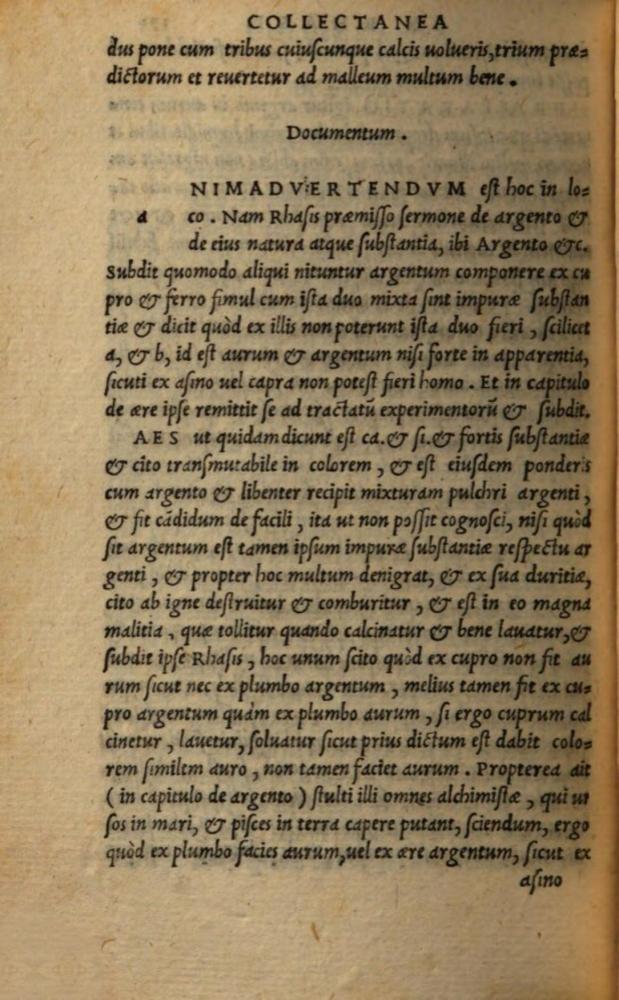 COLLECTANEA
dus pone cum tribus cuiuſcunque calcis uolueris, trium præ⸗
dictorum et reuertetur ad malleum multum bene.
Documentum.
a NIMADVERTENDVM eſt hoc in lo⸗
co. Nam Rhaſis præmiſſo ſermone de argento &
de eius natura atque ſubſtantia, ibi Argento &c.
Subdit quomodo aliqui nituntur argentum componere ex cu
pro & ferro ſimul cum iſta duo mixta ſint impuræ ſubſtan
tiæ & dicit quòd ex illis non poterunt iſta duo fieri, ſcilicet
a, & b, id eſt aurum & argentum niſi forte in apparentia,
ſicuti ex aſino uel capra non poteſt fieri homo. Et in capitulo
de ære ipſe remittit ſe ad tractatũ experimentorũ & ſubdit.
AES ut quidam dicunt eſt ca. & ſi. & fortis ſubſtantiæ
& cito tranſmutabile in colorem, & eſt eiuſdem ponderis
cum argento & libenter recipit mixturam pulchri argenti,
& fit cãdidum de facili, ita ut non poſſit cognoſci, niſi quòd
ſit argentum eſt tamen ipſum impuræ ſubſtantiæ reſpectu ar
genti, & propter hoc multum denigrat, & ex ſua duritiæ,
cito ab igne deſtruitur & comburitur, & eſt in eo magna
malitia, quæ tollitur quando calcinatur & bene lauatur, &
ſubdit ipſe Rhaſis, hoc unum ſcito quòd ex cupro non fit au
rum ſicut nec ex plumbo argentum, melius tamen fit ex cu⸗
pro argentum quàm ex plumbo aurum, ſi ergo cuprum cal
cinetur, lauetur, ſoluatur ſicut prius dictum eſt dabit colo⸗
rem ſimilem auro, non tamen faciet aurum. Propterea ait
(in capitulo de argento) ſtulti illi omnes alchimiſtæ, qui ur
ſos in mari, & piſces in terra capere putant, ſciendum, ergo
quòd ex plumbo facies aurum, uel ex ære argentum, ſicut ex
aſino